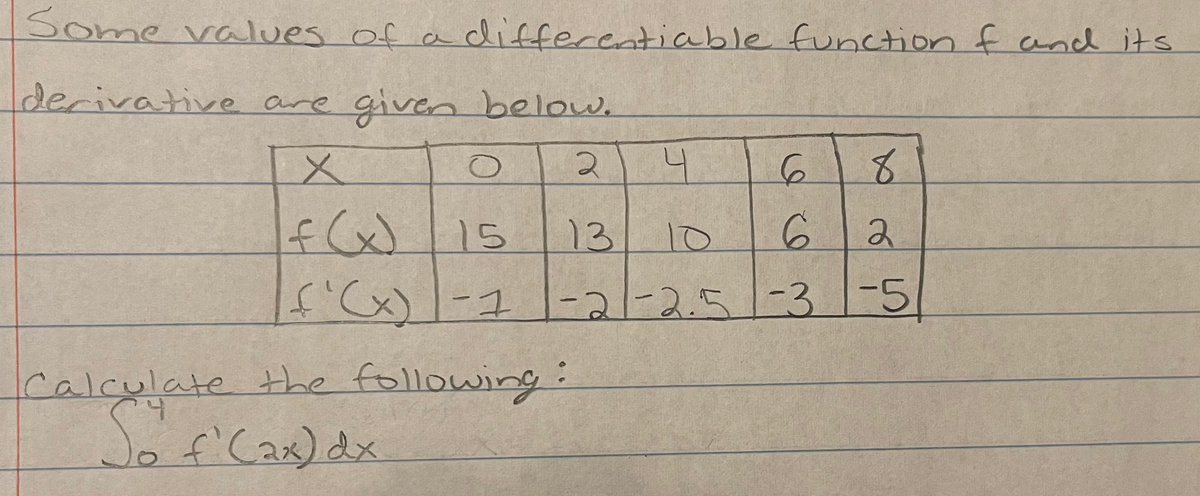 Some values of a differentiable function f and its
derivative are given below.
x 0 2 4 6 8
f(x) 15 13 10 6 2
f'(x) -1 -2 -2.5 -3 -5
Calculate the following:
∫₀⁴ f'(2x) dx